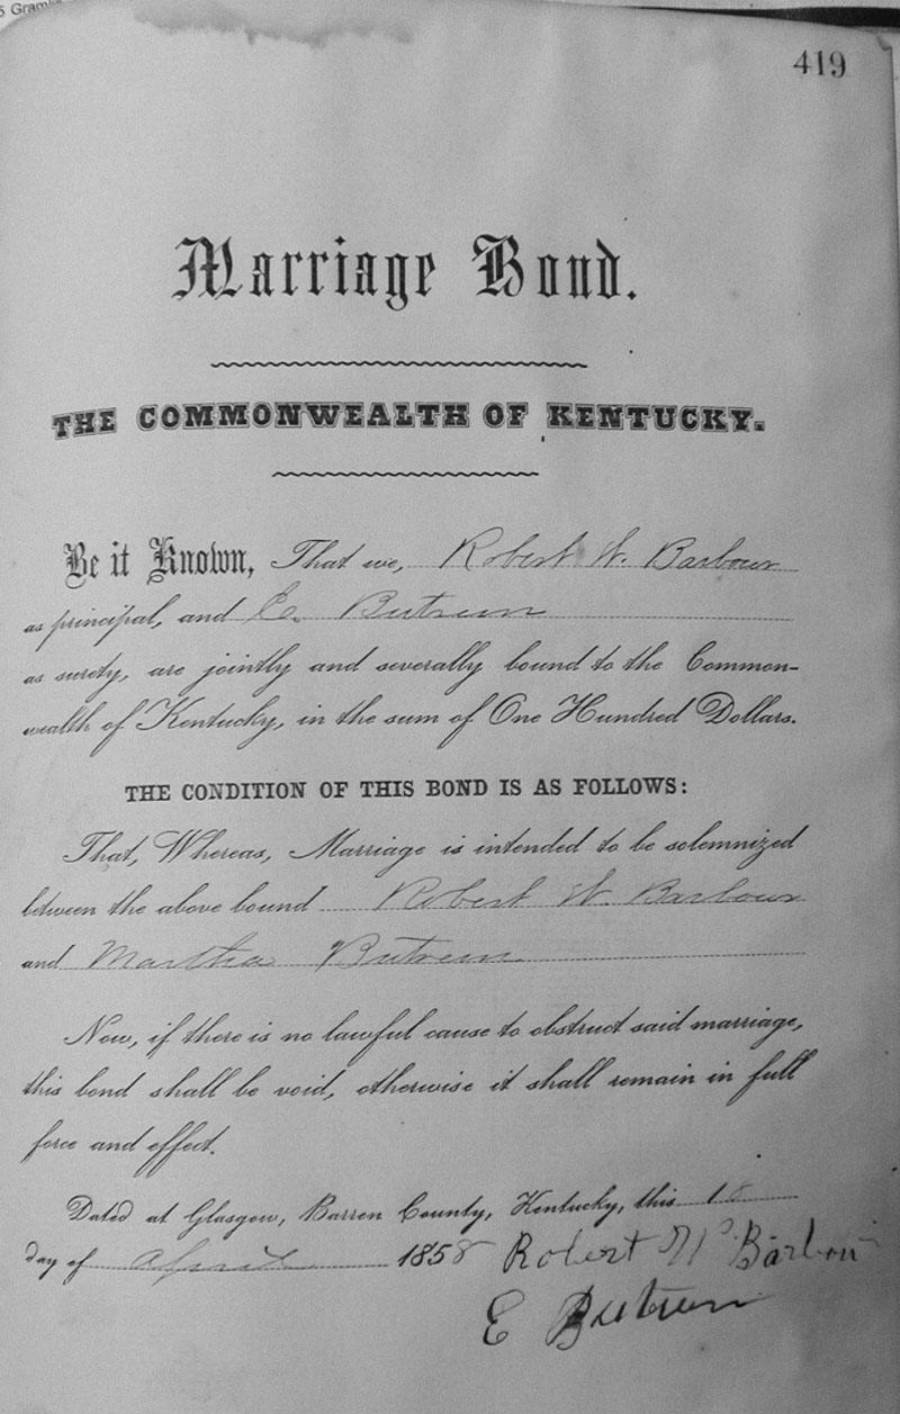 5 Gram
419
Marriage Bond.
THE COMMONWEALTH OF KENTUCKY.
Be it Known, That we, Robert W. Barbour
as principal, and E. Butrum
as surety, are jointly and severally bound to the Common-
wealth of Kentucky, in the sum of One Hundred Dollars.
THE CONDITION OF THIS BOND IS AS FOLLOWS:
That, Whereas, Marriage is intended to be solemnized
between the above bound Robert W. Barbour
and Martha Butrum
Now, if there is no lawful cause to obstruct said marriage,
this bond shall be void, otherwise it shall remain in full
force and effect.
Dated at Glasgow, Barren County, Kentucky, this 18
day of April 1858 Robert W Barbour
E Butrum